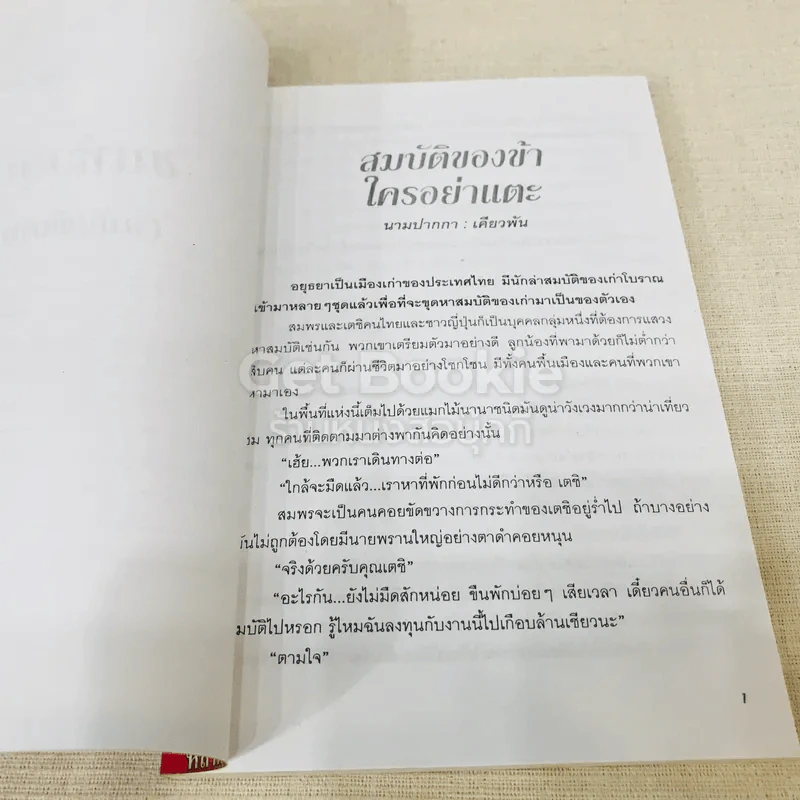 สมบัติของข้า
ใครอย่าแตะ
นามปากกา : เคียวพัน
อยุธยาเป็นเมืองเก่าของประเทศไทย มีนักล่าสมบัติของเก่าโบราณ
เข้ามาหลายๆชุดแล้วเพื่อที่จะขุดหาสมบัติของเก่ามาเป็นของตัวเอง
สมพรและเตชิคนไทยและชาวญี่ปุ่นก็เป็นบุคคลกลุ่มหนึ่งที่ต้องการแสวง
หาสมบัติเช่นกัน พวกเขาเตรียมตัวมาอย่างดี ลูกน้องที่พามาด้วยก็ไม่ต่ำกว่า
สิบคน แต่ละคนก็ผ่านชีวิตมาอย่างโชกโชน มีทั้งคนพื้นเมืองและคนที่พวกเขา
หามาเอง
Get Bookie
ร้านหนังสือบุ๊กกี้
ในพื้นที่แห่งนี้เต็มไปด้วยแมกไม้นานาชนิดมันดูน่าวังเวงมากกว่าน่าเที่ยว
ชม ทุกคนที่ติดตามมาต่างพากันคิดอย่างนั้น
“เฮ้ย...พวกเราเดินทางต่อ”
“ใกล้จะมืดแล้ว...เราหาที่พักก่อนไม่ดีกว่าหรือ เตชิ”
สมพรจะเป็นคนคอยขัดขวางการกระทำของเตชิอยู่ร่ำไป ถ้าบางอย่าง
มันไม่ถูกต้องโดยมีนายพรานใหญ่อย่างตาดำคอยหนุน
“จริงด้วยครับคุณเตชิ”
“อะไรกัน...ยังไม่มืดสักหน่อย ขืนพักบ่อยๆ เสียเวลา เดี๋ยวคนอื่นก็ได้
สมบัติไปหรอก รู้ไหมฉันลงทุนกับงานนี้ไปเกือบล้านเชียวนะ”
“ตามใจ”
1